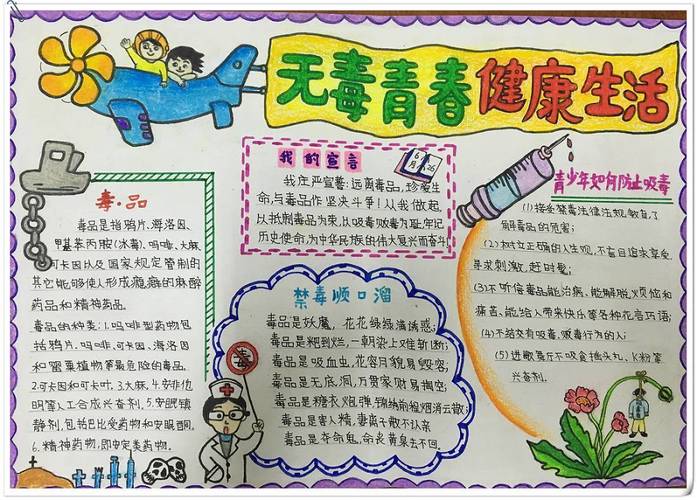 无毒青春健康生活
我的宣言
6月26
我庄严宣誓:远离毒品,珍爱生
命,与毒品作坚决斗争!从我做起,
以抵制毒品为荣,以吸毒贩毒为耻,牢记
历史使命,为中华民族的伟大复兴而奋斗!
毒·品
毒品是指鸦片、海洛因、
甲基苯丙胺(冰毒)、吗啡、大麻、
可卡因以及国家规定管制的
其它能够使人形成瘾癖的麻醉
药品和精神药品。
毒品的种类:1.吗啡型药物包
括鸦片、吗啡、可卡因、海洛因
和罂粟植物等最危险的毒品。
2.可卡因和可卡叶.3.大麻.4.安非他
明等人工合成兴奋剂.5.安眠镇
静剂,包括巴比妥药物和安眠酮.
6.精神药物,即安定类药物.
禁毒顺口溜
毒品是妖魔,花花绿绿满诱惑;
毒品是粑到烂,一朝染上又难斩断;
毒品是吸血虫,花容月貌易毁容;
毒品是无底洞,万贯家财易掏空;
毒品是糖衣炮弹,锦绣前程烟消云散;
毒品是害人精,妻离子散不认亲;
毒品是夺命鬼,命丧黄泉去不回.
毒
青少年如何防止吸毒
(1)接受禁毒法律法规教育,了
解毒品的危害;
(2)树立正确的人生观,不盲目追求享受
寻求刺激,赶时髦;
(3)不听信毒品能治病、能解脱烦恼和
痛苦、能给人带来快乐等各种花言巧语;
(4)不结交有吸毒、贩毒行为的人;
(5)进歌舞厅不吸食摇头丸、K粉等
兴奋剂.